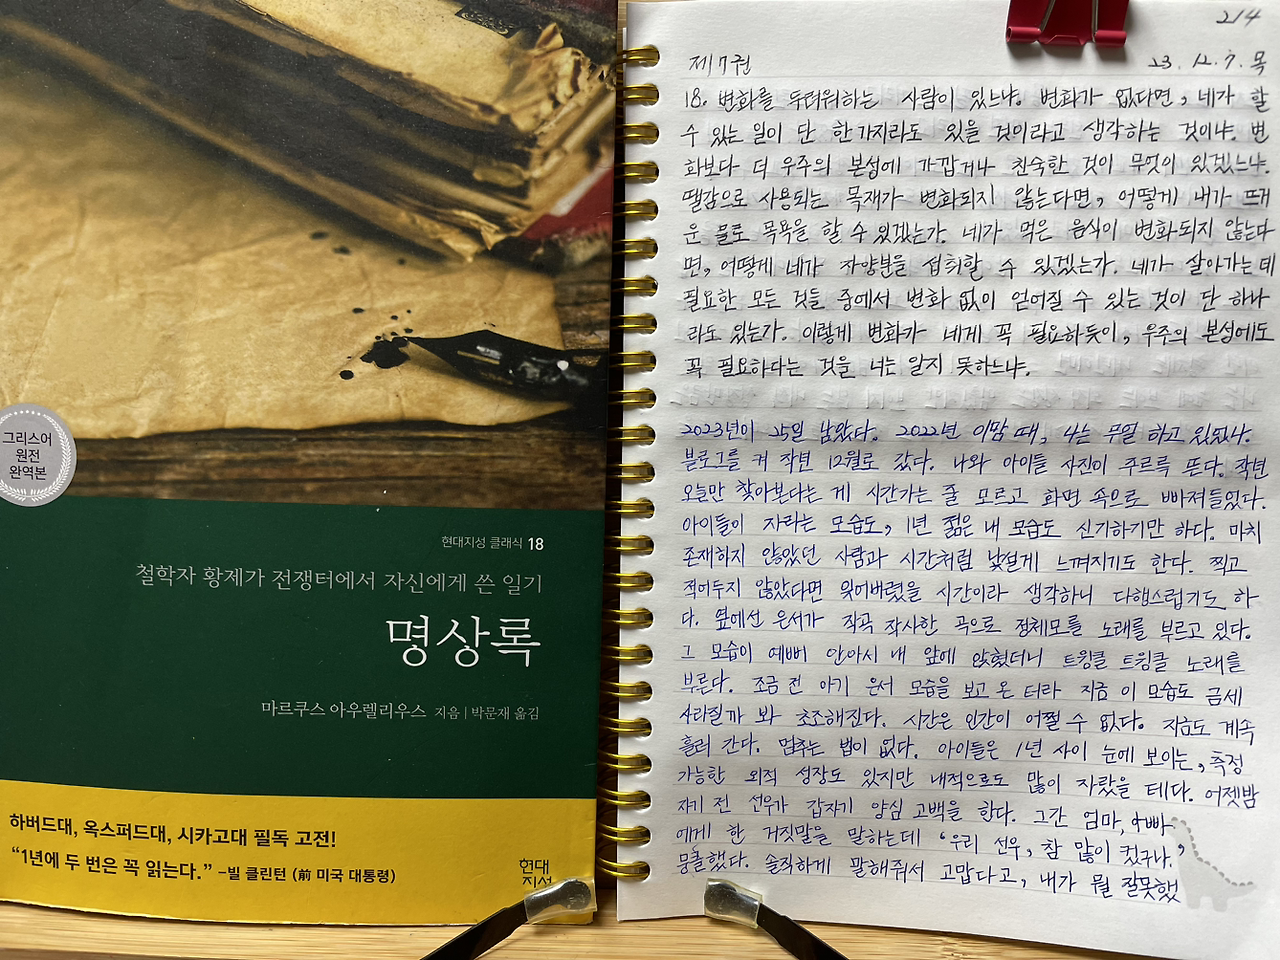 그리스어
원전
완역본
현대지성 클래식 18
철학자 황제가 전쟁터에서 자신에게 쓴 일기
명상록
마르쿠스 아우렐리우스 지음 | 박문재 옮김
하버드대, 옥스퍼드대, 시카고대 필독 고전!
“1년에 두 번은 꼭 읽는다.” –빌 클린턴 (前 미국 대통령)
현대
지성
214
제7권 23. 12. 7. 목
18. 변화를 두려워하는 사람이 있느냐. 변화가 없다면, 네가 할
수 있는 일이 단 한가지라도 있을 것이라고 생각하는 것이냐. 변
화보다 더 우주의 본성에 가깝거나 친숙한 것이 무엇이 있겠느냐.
땔감으로 사용되는 목재가 변화되지 않는다면, 어떻게 네가 뜨거
운 물로 목욕을 할 수 있겠는가. 네가 먹은 음식이 변화되지 않는다
면, 어떻게 네가 자양분을 섭취할 수 있겠는가. 네가 살아가는데
필요한 모든 것들 중에서 변화 없이 얻어질 수 있는 것이 단 하나
라도 있는가. 이렇게 변화가 네게 꼭 필요하듯이, 우주의 본성에도
꼭 필요하다는 것을 너는 알지 못하느냐.
2023년이 25일 남았다. 2022년 이맘 때, 나는 무얼 하고 있었나.
블로그를 켜 작년 12월로 갔다. 나와 아이들 사진이 주르륵 뜬다. 작년
오늘만 찾아본다는 게 시간가는 줄 모르고 화면 속으로 빠져들었다.
아이들이 자라는 모습도, 1년 젊은 내 모습도 신기하기만 하다. 마치
존재하지 않았던 사람과 시간처럼 낯설게 느껴지기도 한다. 찍고
적어두지 않았다면 잊어버렸을 시간이라 생각하니 다행스럽기도 하
다. 옆에선 은서가 작곡 작사한 곡으로 정체모를 노래를 부르고 있다.
그 모습이 예뻐 안아서 내 앞에 앉혔더니 트윙클 트윙클 노래를
부른다. 조금 전 아기 은서 모습을 보고 온 터라 지금 이 모습도 금세
사라질까 봐 초조해진다. 시간은 인간이 어쩔 수 없다. 지금도 계속
흘러 간다. 멈추는 법이 없다. 아이들은 1년 사이 눈에 보이는, 측정
가능한 외적 성장도 있지만 내적으로도 많이 자랐을 테다. 어젯밤
자기 전 선우가 갑자기 양심 고백을 한다. 그간 엄마, 아빠
에게 한 거짓말을 말하는데 ‘우리 선우, 참 많이 컸구나.’
뭉클했다. 솔직하게 말해줘서 고맙다고, 내가 뭘 잘못했